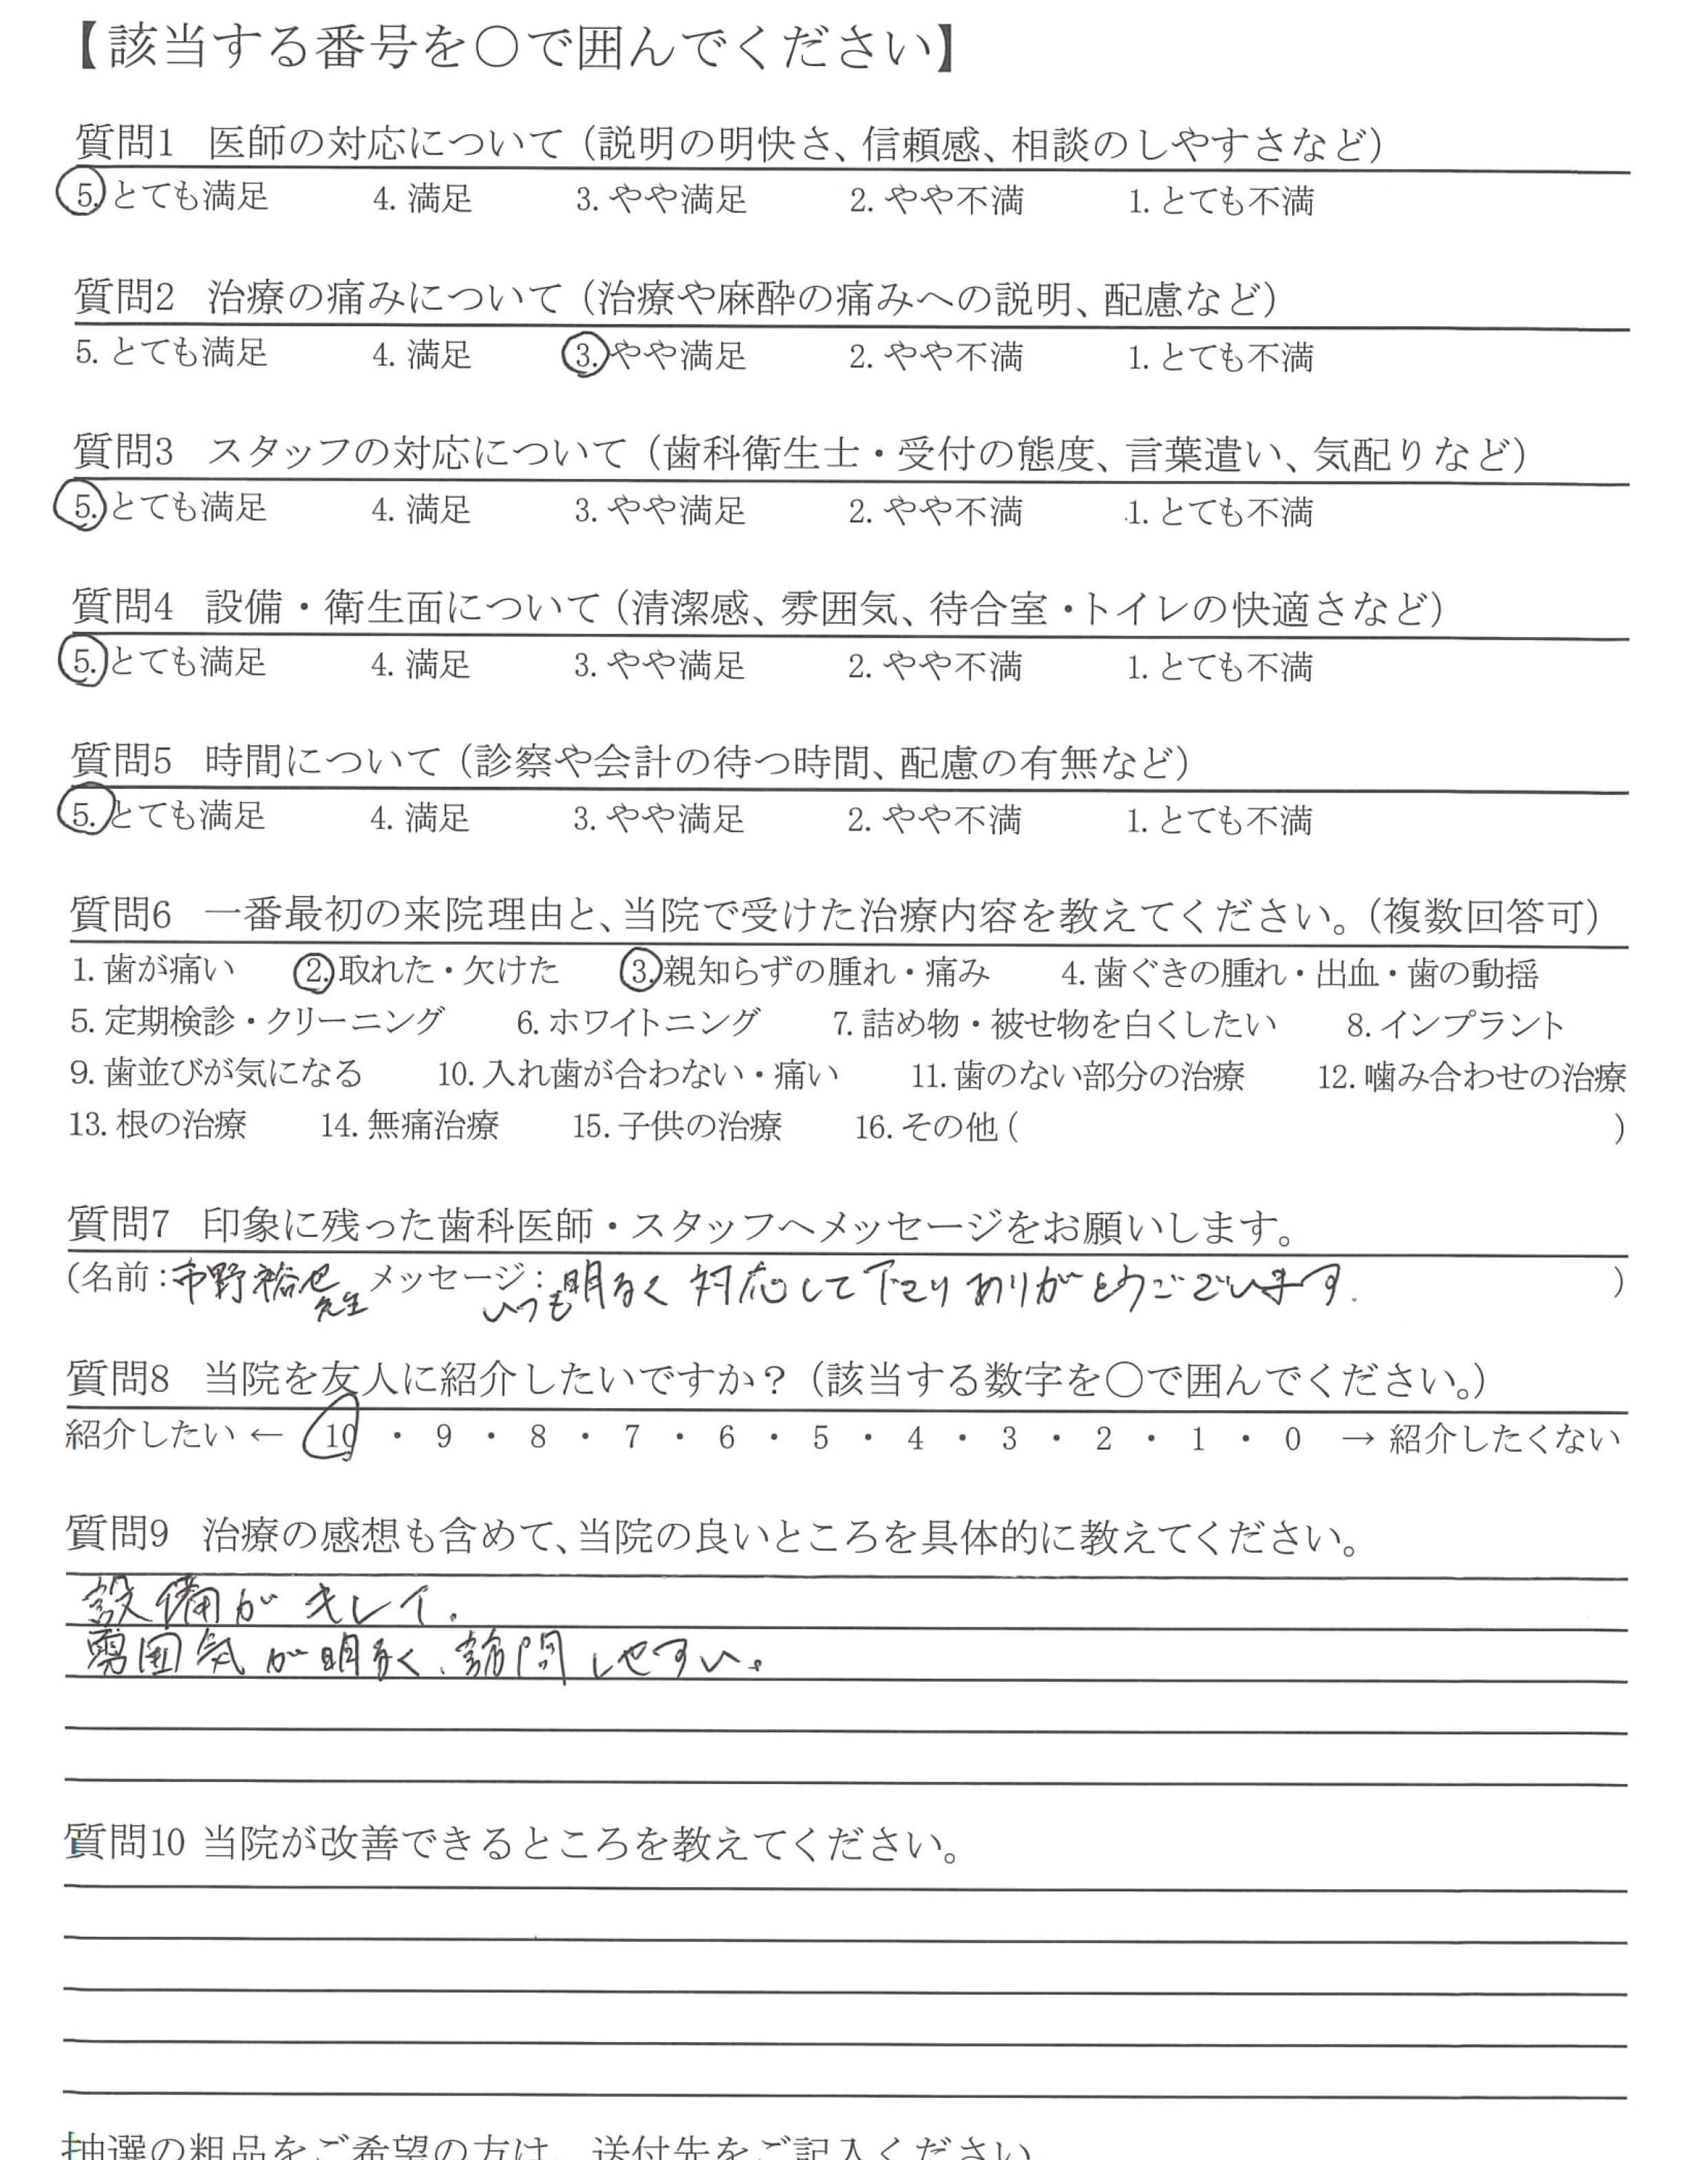 【該当する番号を〇で囲んでください】
質問1 医師の対応について（説明の明快さ、信頼感、相談のしやすさなど）
5. とても満足 4. 満足 3. やや満足 2. やや不満 1. とても不満
質問2 治療の痛みについて（治療や麻酔の痛みへの説明、配慮など）
5. とても満足 4. 満足 3. やや満足 2. やや不満 1. とても不満
質問3 スタッフの対応について（歯科衛生士・受付の態度、言葉遣い、気配りなど）
5. とても満足 4. 満足 3. やや満足 2. やや不満 1. とても不満
質問4 設備・衛生面について（清潔感、雰囲気、待合室・トイレの快適さなど）
5. とても満足 4. 満足 3. やや満足 2. やや不満 1. とても不満
質問5 時間について（診察や会計の待つ時間、配慮の有無など）
5. とても満足 4. 満足 3. やや満足 2. やや不満 1. とても不満
質問6 一番最初の来院理由と、当院で受けた治療内容を教えてください。（複数回答可）
1. 歯が痛い 2. 取れた・欠けた 3. 親知らずの腫れ・痛み 4. 歯ぐきの腫れ・出血・歯の動揺
5. 定期検診・クリーニング 6. ホワイトニング 7. 詰め物・被せ物を白くしたい 8. インプラント
9. 歯並びが気になる 10. 入れ歯が合わない・痛い 11. 歯のない部分の治療 12. 噛み合わせの治療
13. 根の治療 14. 無痛治療 15. 子供の治療 16. その他（ ）
質問7 印象に残った歯科医師・スタッフへメッセージをお願いします。
（名前：市野裕也先生 メッセージ：いつも明るく対応して下さりありがとうございます. ）
質問8 当院を友人に紹介したいですか？（該当する数字を〇で囲んでください。）
紹介したい ← 10 ・ 9 ・ 8 ・ 7 ・ 6 ・ 5 ・ 4 ・ 3 ・ 2 ・ 1 ・ 0 → 紹介したくない
質問9 治療の感想も含めて、当院の良いところを具体的に教えてください。
設備がキレイ.
雰囲気が明るく、訪問しやすい。
質問10 当院が改善できるところを教えてください。
抽選の粗品をご希望の方は、送付先をご記入ください